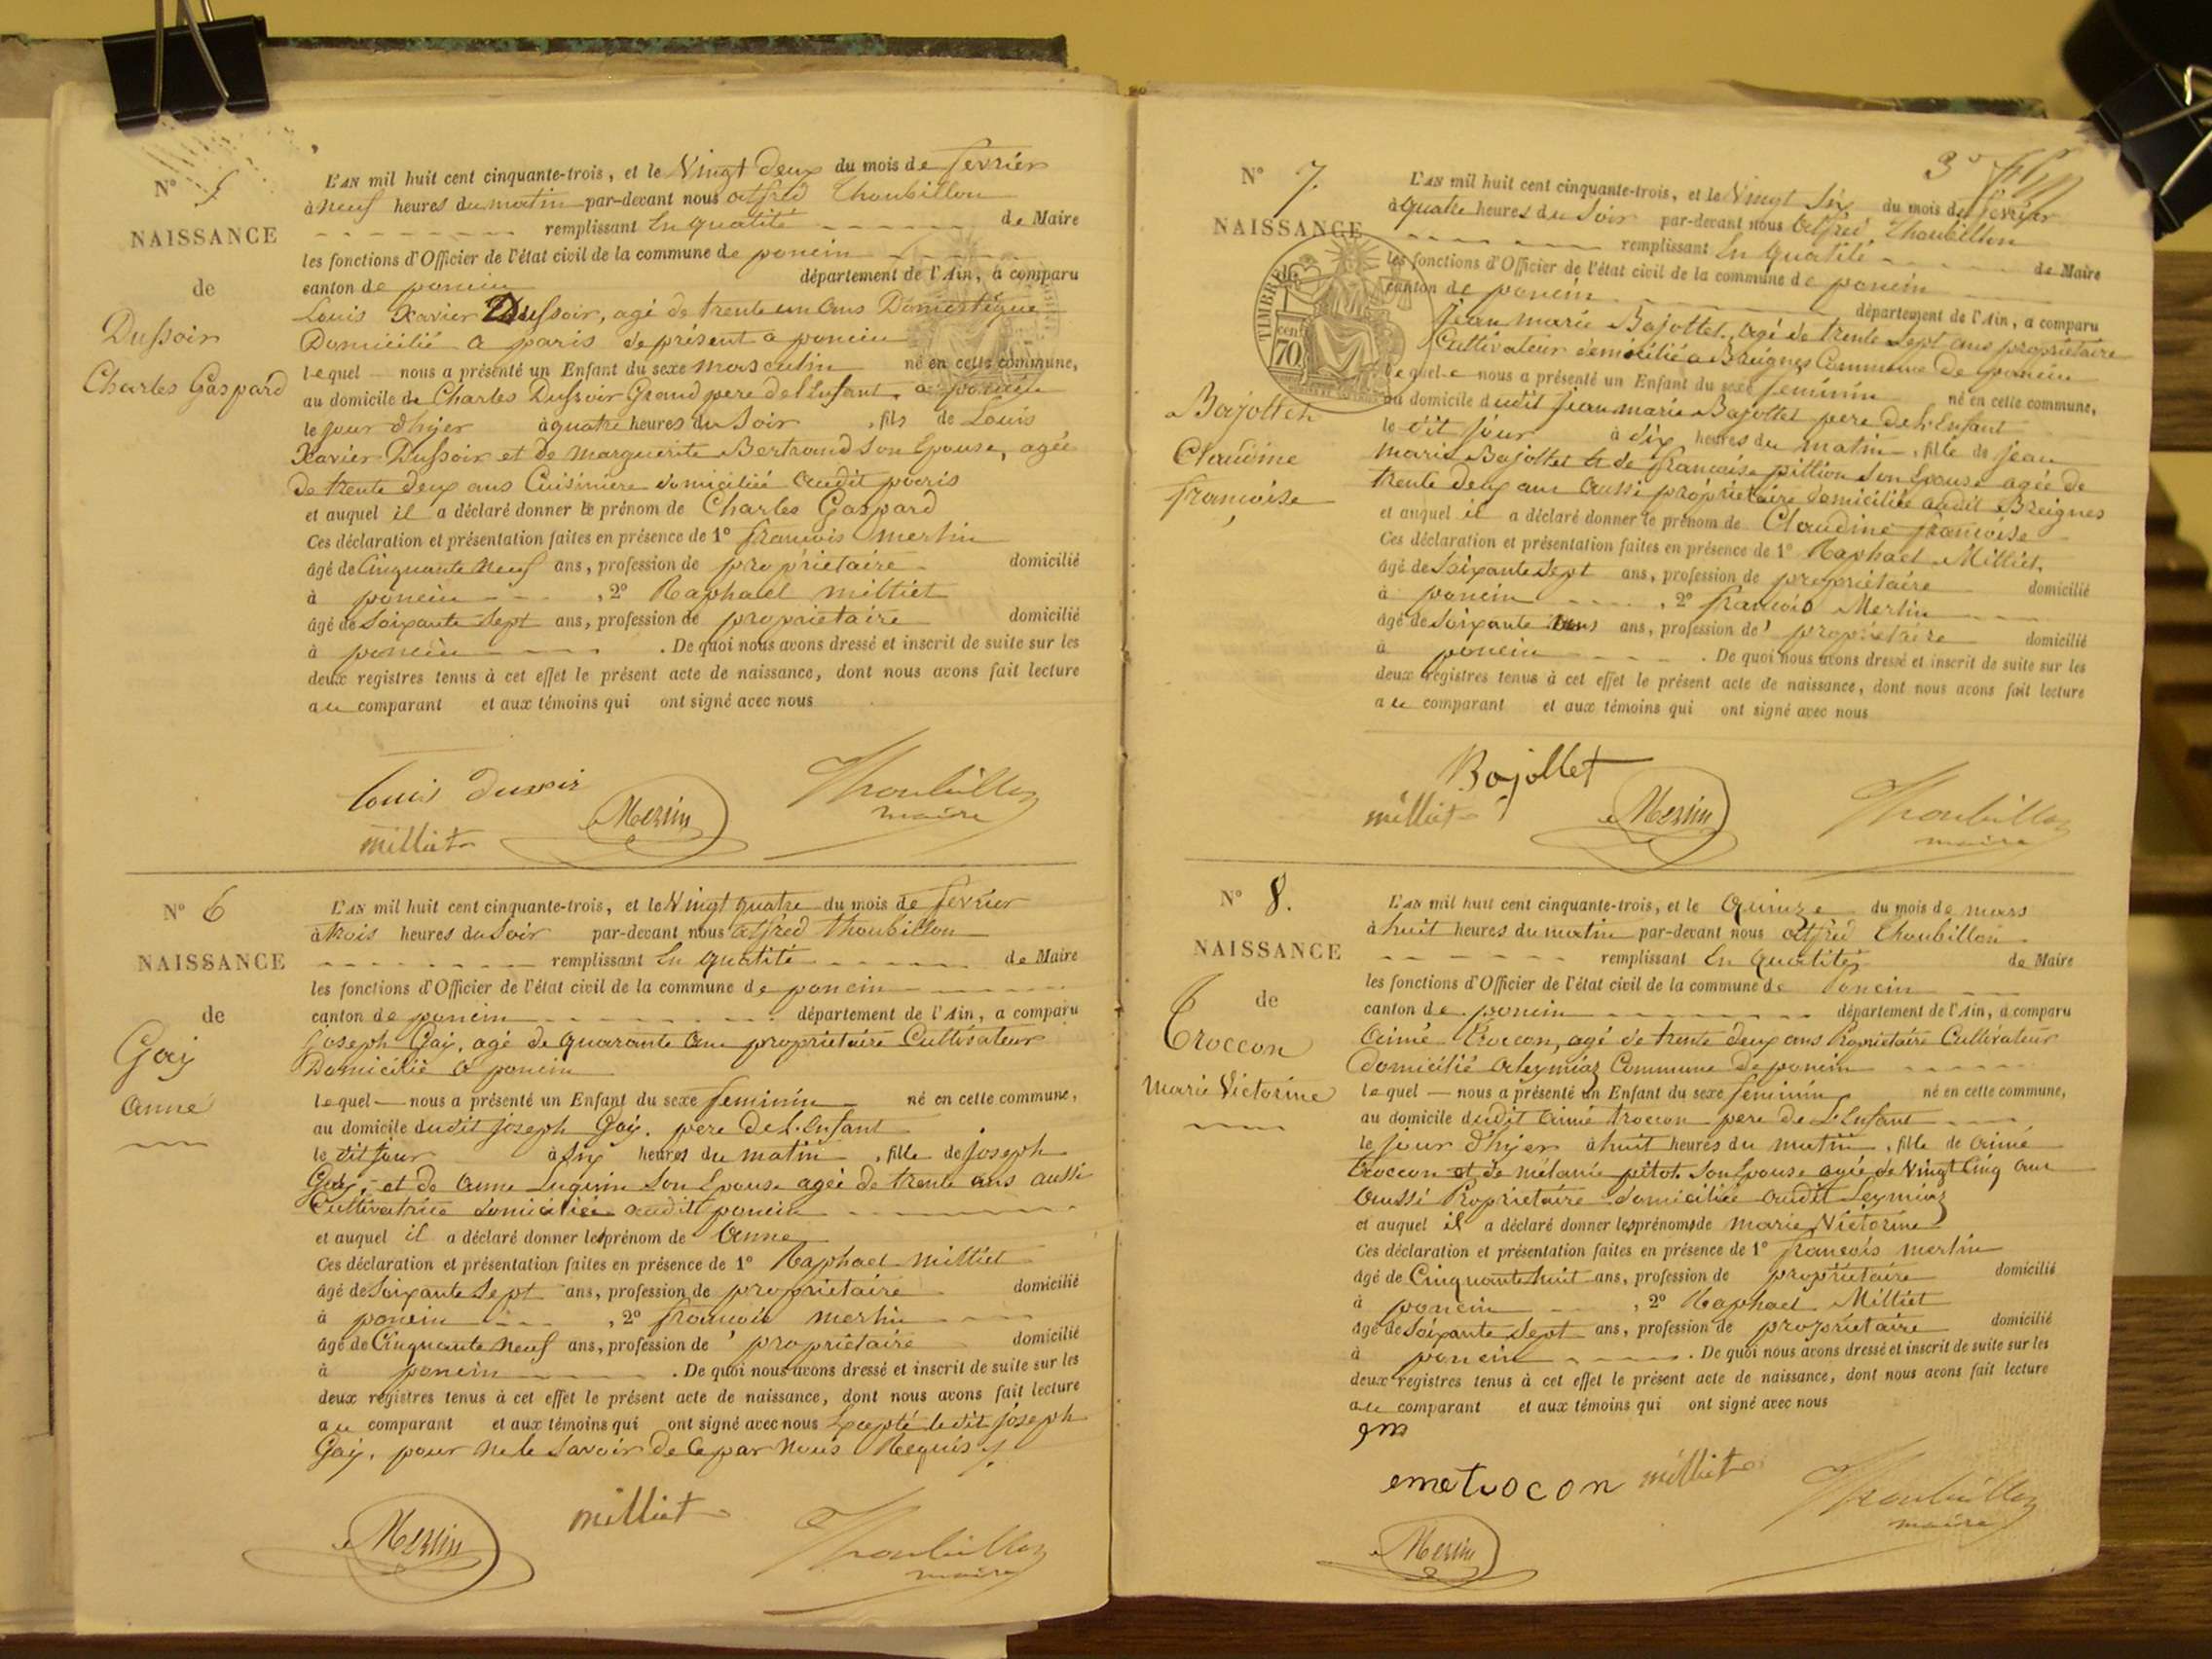 N° 5
NAISSANCE
de
Dussoir
Charles Gaspard
L'AN mil huit cent cinquante-trois, et le Vingt Deux du mois de fevrier
à neuf heures du matin par-devant nous alfred Thoubillon
remplissant En qualité de Maire
les fonctions d'Officier de l'état civil de la commune de poncin
canton de poncin département de l'Ain, a comparu
Louis Xavier Dussoir, agé de trente un ans Domestique
Domicilié a paris de présent a poncin
lequel nous a présenté un Enfant du sexe masculin né en cette commune,
au domicile de Charles Dussoir Grand pere de l'Enfant a poncin
le jour d'hier à quatre heures du Soir, fils de Louis
Xavier Dussoir et de marguerite Bertrand son Epouse, agée
de trente deux ans Cuisiniere domiciliée audit paris
et auquel il a déclaré donner le prénom de Charles Gaspard
Ces déclaration et présentation faites en présence de 1° françois merlin
âgé de Cinquante neuf ans, profession de propriétaire domicilié
à poncin, 2° Raphael milliet
âgé de Soixante Sept ans, profession de propriétaire domicilié
à poncin. De quoi nous avons dressé et inscrit de suite sur les
deux registres tenus à cet effet le présent acte de naissance, dont nous avons fait lecture
au comparant et aux témoins qui ont signé avec nous
Louis dussoir
Merlin
Thoubillon
maire
milliet
N° 6
NAISSANCE
de
Gay
anne
L'AN mil huit cent cinquante-trois, et le Vingt quatre du mois de fevrier
à trois heures du Soir par-devant nous alfred Thoubillon
remplissant En qualité de Maire
les fonctions d'Officier de l'état civil de la commune de poncin
canton de poncin département de l'Ain, a comparu
joseph Gay, agé de quarante ans propriétaire Cultivateur
Domicilié a poncin
lequel nous a présenté un Enfant du sexe feminin né en cette commune,
au domicile dudit joseph Gay. pere de l'Enfant
le dit jour à Six heures du matin, fille de joseph
Gay, et de anne Luquin Son Epouse agée de trente ans aussi
Cultivatrice domiciliée audit poncin
et auquel il a déclaré donner le prénom de anne
Ces déclaration et présentation faites en présence de 1° Raphael milliet
âgé de Soixante Sept ans, profession de propriétaire domicilié
à poncin, 2° françois merlin
âgé de Cinquante neuf ans, profession de propriétaire domicilié
à poncin. De quoi nous avons dressé et inscrit de suite sur les
deux registres tenus à cet effet le présent acte de naissance, dont nous avons fait lecture
au comparant et aux témoins qui ont signé avec nous Excepté ledit joseph
Gay, pour ne le Savoir de ce par nous Requis
Merlin
milliet
Thoubillon
maire
3e
N° 7.
NAISSANCE
TIMBRE
cent
70
Bajollet
Claudine
françoise
L'AN mil huit cent cinquante-trois, et le Vingt Six du mois de fevrier
à quatre heures du Soir par-devant nous alfred Thoubillon
remplissant En qualité de Maire
les fonctions d'Officier de l'état civil de la commune de poncin
canton de poncin département de l'Ain, a comparu
jean marie Bajollet, agé de trente Sept ans propriétaire
Cultivateur domicilié a Breignes Commune de poncin
lequel nous a présenté un Enfant du sexe feminin né en cette commune,
au domicile dudit jean marie Bajollet pere de l'Enfant
le dit jour à Six heures du matin, fille de jean
marie Bajollet & de françoise pittion Son Epouse agée de
trente deux ans aussi propriétaire domiciliée audit Breignes
et auquel il a déclaré donner le prénom de Claudine françoise
Ces déclaration et présentation faites en présence de 1° Raphael Milliet,
âgé de Soixante Sept ans, profession de propriétaire domicilié
à poncin, 2° françois Merlin
âgé de Soixante ans, profession de propriétaire domicilié
à poncin. De quoi nous avons dressé et inscrit de suite sur les
deux registres tenus à cet effet le présent acte de naissance, dont nous avons fait lecture
au comparant et aux témoins qui ont signé avec nous
Bajollet
milliet
Merlin
Thoubillon
maire
N° 8.
NAISSANCE
de
Troccon
Marie Victorine
L'AN mil huit cent cinquante-trois, et le Quinze du mois de mars
à huit heures du matin par-devant nous alfred Thoubillon
remplissant En qualité de Maire
les fonctions d'Officier de l'état civil de la commune de Poncin
canton de poncin département de l'Ain, a comparu
aimé Troccon, agé de trente deux ans Propriétaire Cultivateur
domicilié a leymiaz Commune de poncin
lequel nous a présenté un Enfant du sexe feminin né en cette commune,
au domicile dudit aimé troccon pere de L'Enfant
le jour d'hier à huit heures du matin, fille de aimé
troccon et de mélanie pitot Son Epouse agée de Vingt Cinq ans
aussi Propriétaire domiciliée audit Leymiaz
et auquel il a déclaré donner les prénoms de marie Victorine
Ces déclaration et présentation faites en présence de 1° françois merlin
âgé de Cinquante huit ans, profession de propriétaire domicilié
à poncin, 2° Raphael Milliet
âgé de Soixante Sept ans, profession de propriétaire domicilié
à poncin. De quoi nous avons dressé et inscrit de suite sur les
deux registres tenus à cet effet le présent acte de naissance, dont nous avons fait lecture
au comparant et aux témoins qui ont signé avec nous
em
emetrocon
milliet
Thoubillon
maire
Merlin